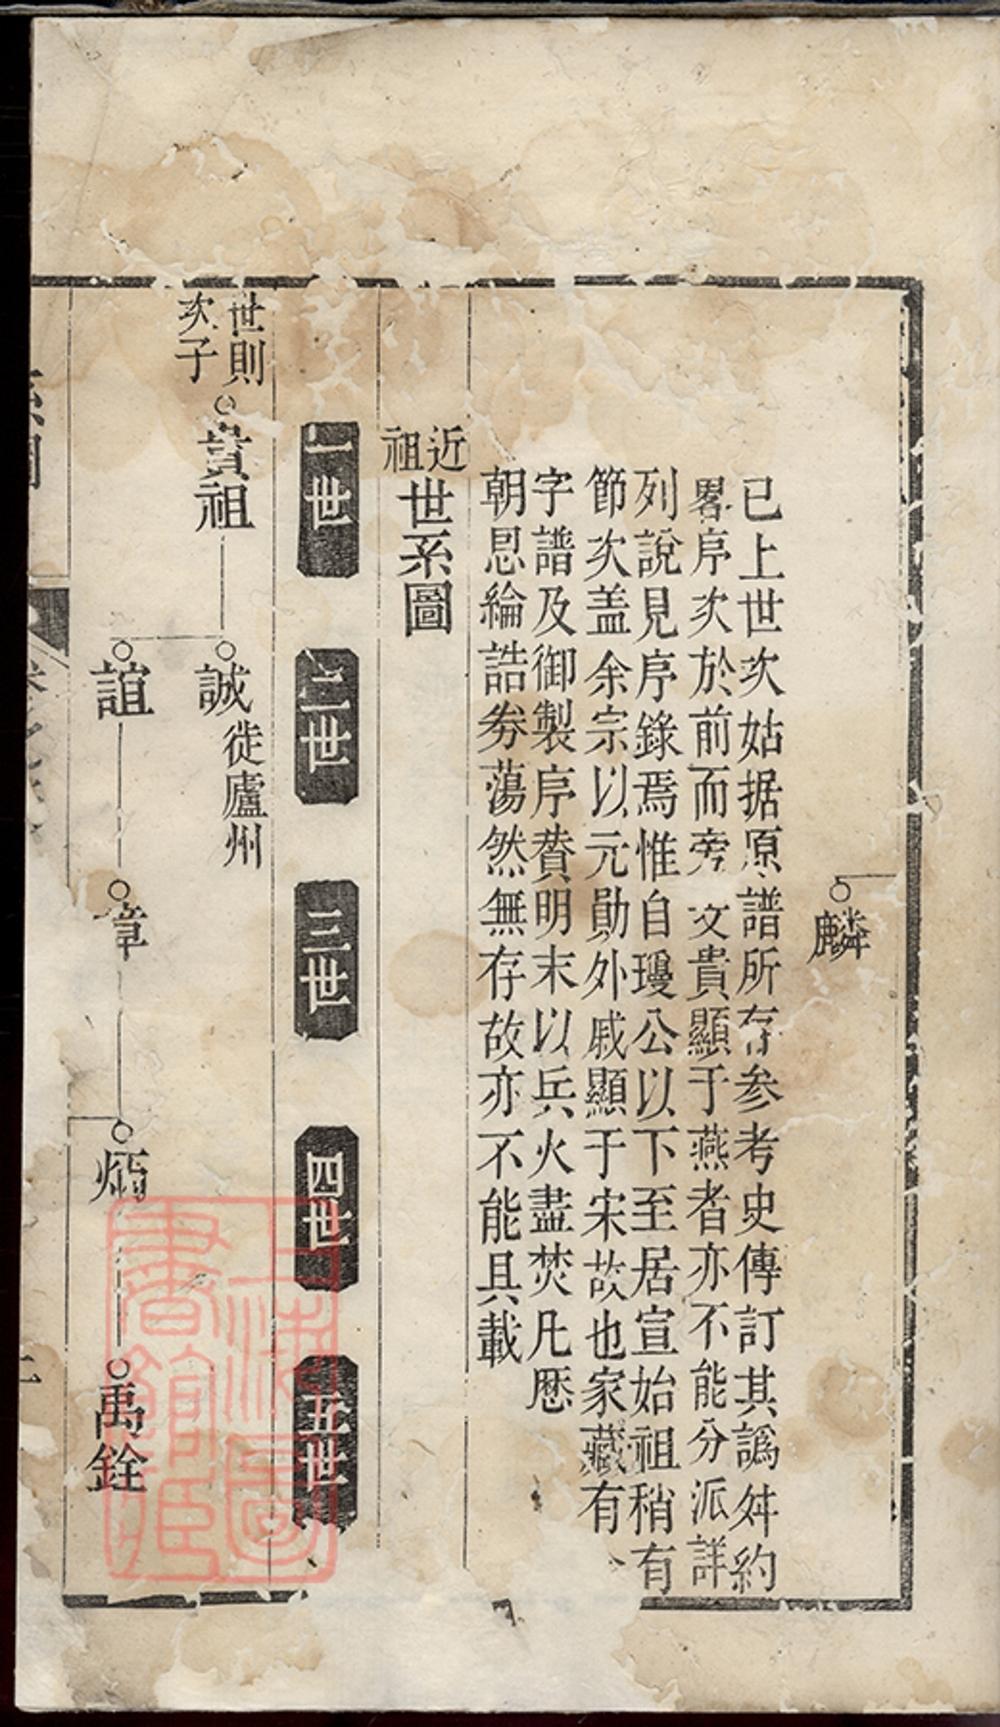 麟
已上世次姑据原譜所存参考史傳訂其譌舛約
畧序次於前而旁文貴顯于燕者亦不能分派詳
列說見序錄焉惟自瓊公以下至居宣始祖稍有
節次盖余宗以元勛外戚顯于宋故也家藏有
字譜及御製序賛明末以兵火盡焚凡厯
朝恩綸誥劵蕩然無存故亦不能具載
近祖世系圖
一世 二世 三世 四世 五世
世則次子 貰祖 誠 徙廬州
誼 章 炳 禹銓
上海圖書館藏